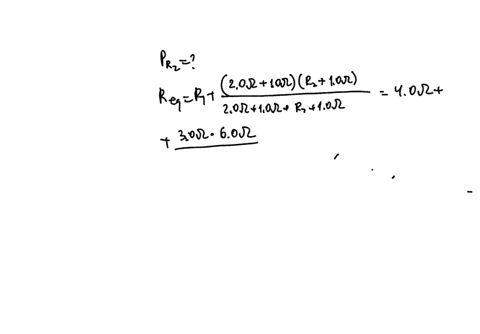 P_R₂ = ?
R_eq = R₁ + (2.0Ω + 1.0Ω)(R₂ + 1.0Ω) / 2.0Ω + 1.0Ω + R₂ + 1.0Ω = 4.0Ω +
+ 3.0Ω · 6.0Ω